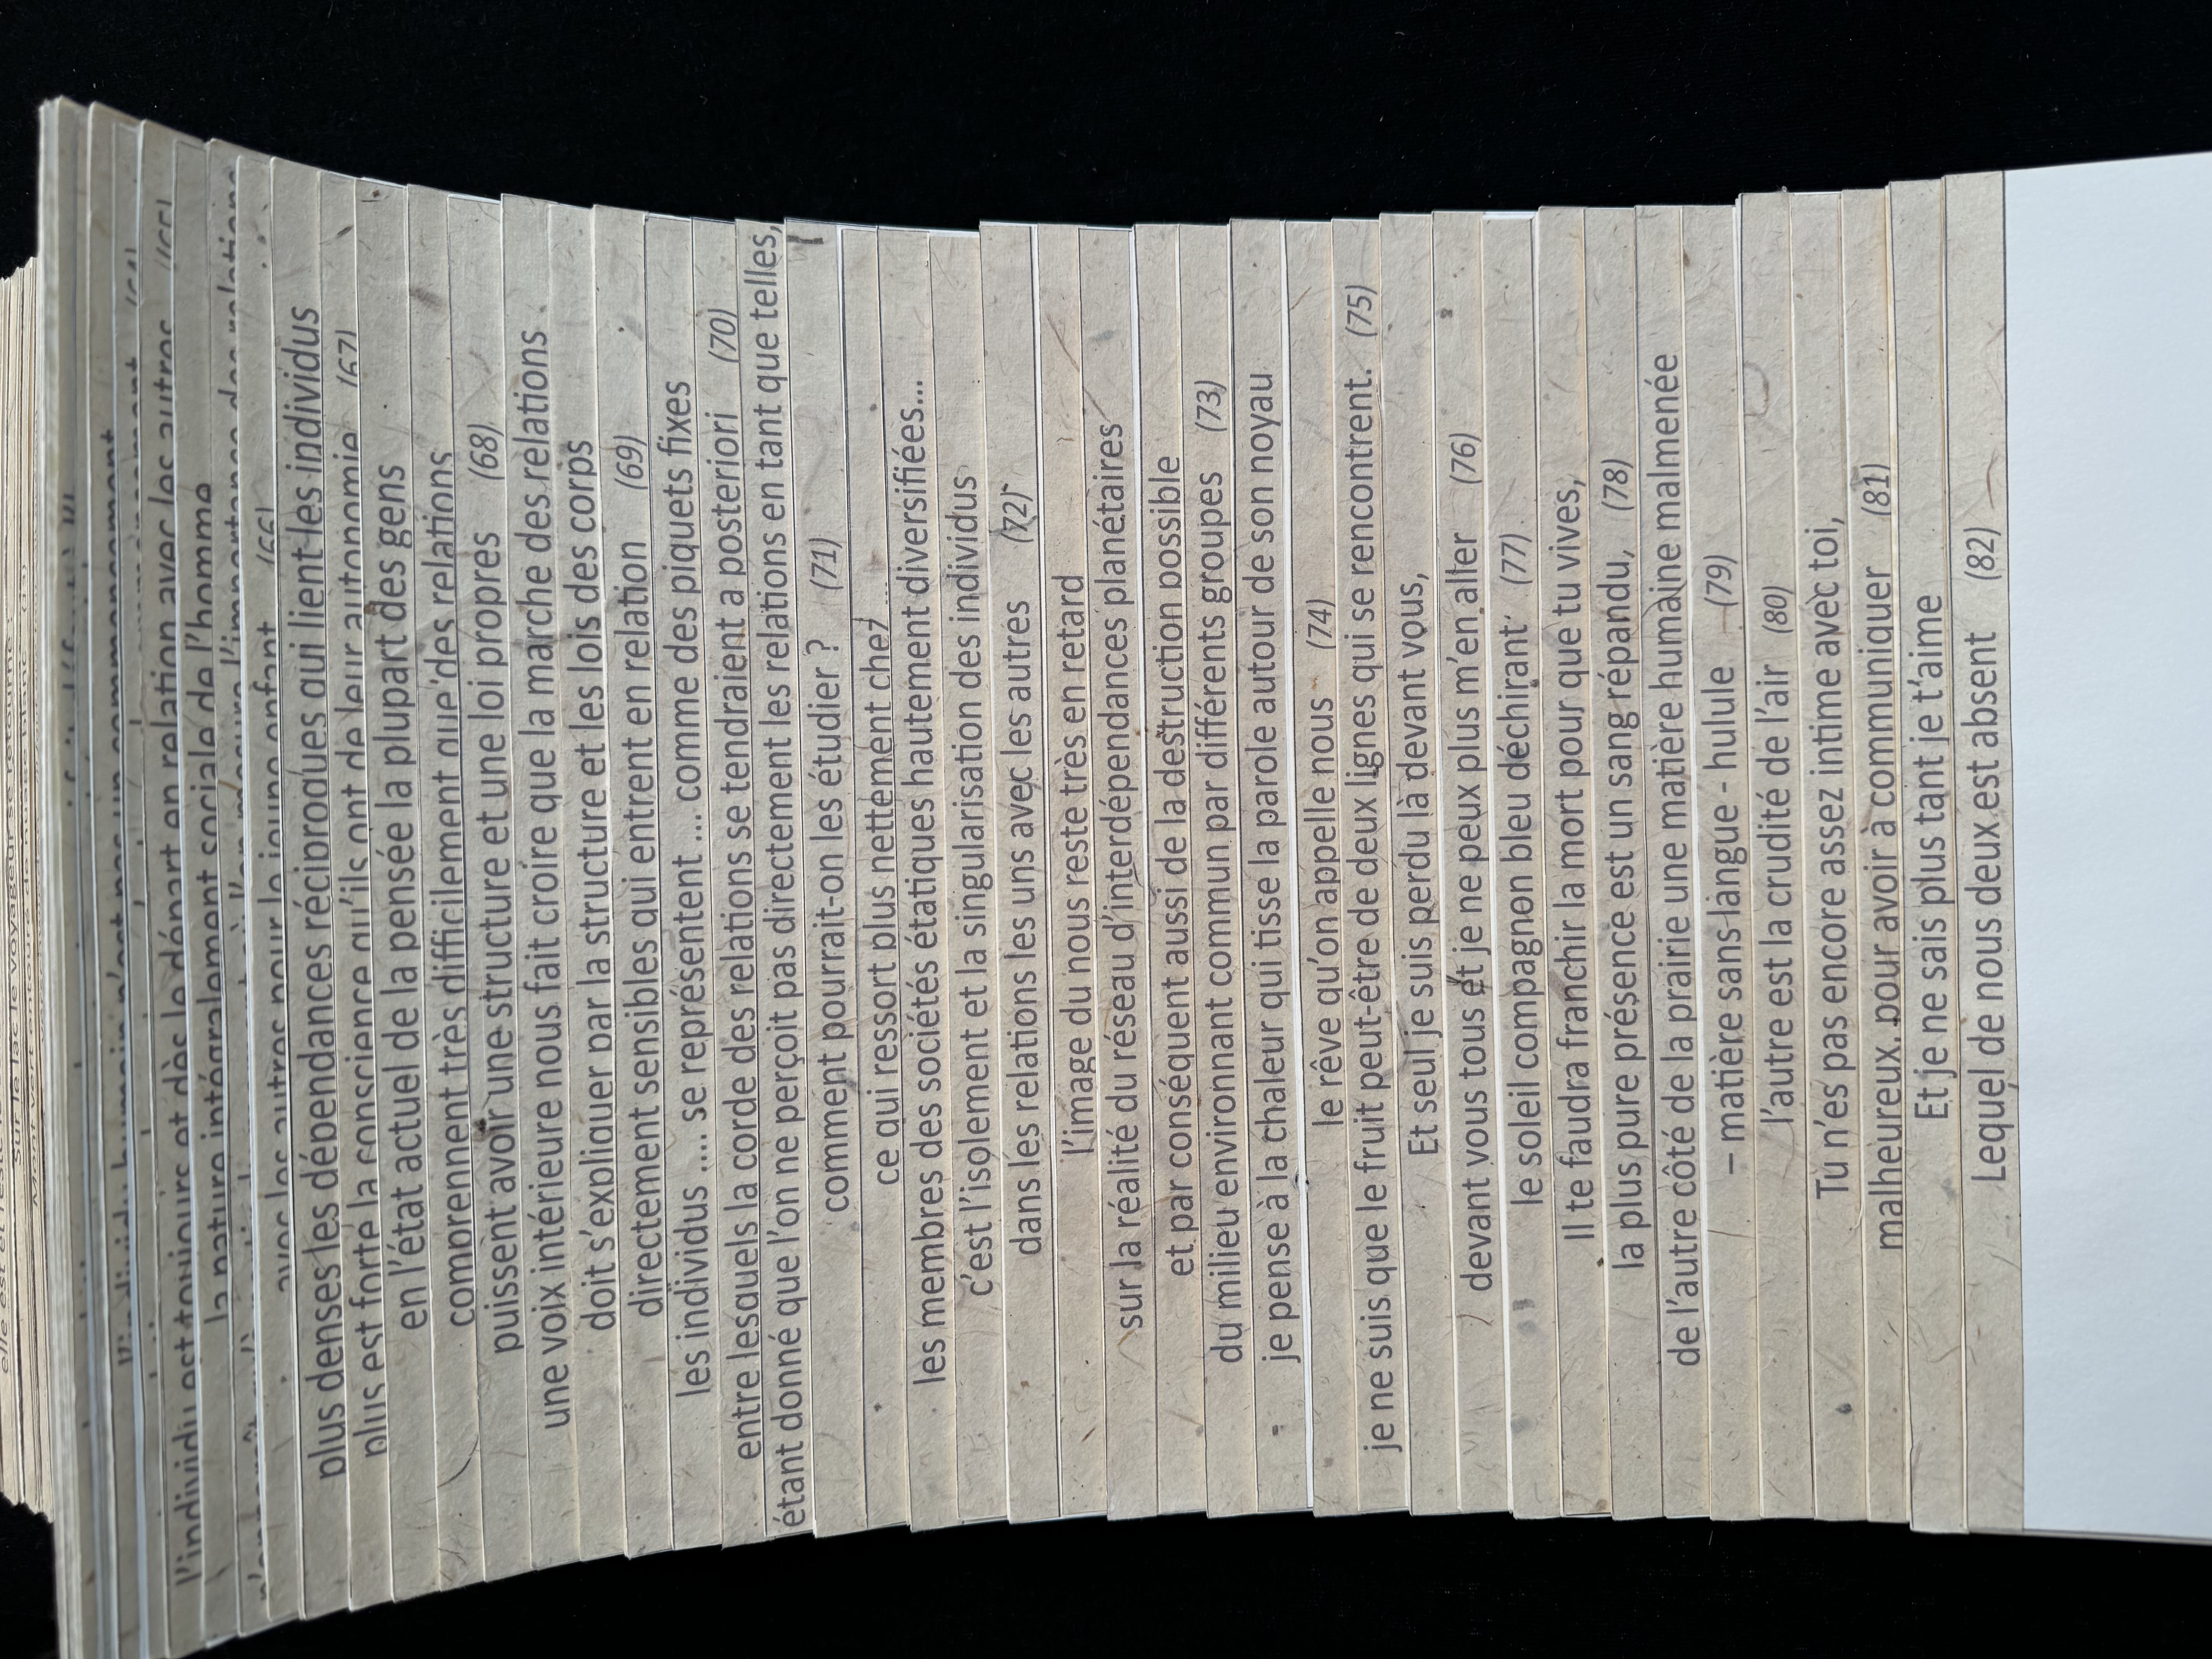 l'individu est toujours et dès le départ en relation avec les autres
la nature intégralement sociale de l'homme
avec les autres pour le jeune enfant (66)
plus denses les dépendances réciproques qui lient les individus
plus est forte la conscience qu'ils ont de leur autonomie (67)
en l'état actuel de la pensée la plupart des gens
comprennent très difficilement que des relations
puissent avoir une structure et une loi propres (68)
une voix intérieure nous fait croire que la marche des relations
doit s'expliquer par la structure et les lois des corps
directement sensibles qui entrent en relation (69)
les individus .... se représentent .... comme des piquets fixes
entre lesquels la corde des relations se tendraient a posteriori (70)
étant donné que l'on ne perçoit pas directement les relations en tant que telles,
comment pourrait-on les étudier ? (71)
ce qui ressort plus nettement chez ....
les membres des sociétés étatiques hautement diversifiées...
c'est l'isolement et la singularisation des individus
dans les relations les uns avec les autres (72)
l'image du nous reste très en retard
sur la réalité du réseau d'interdépendances planétaires
et par conséquent aussi de la destruction possible
du milieu environnant commun par différents groupes (73)
je pense à la chaleur qui tisse la parole autour de son noyau
le rêve qu'on appelle nous (74)
je ne suis que le fruit peut-être de deux lignes qui se rencontrent. (75)
Et seul je suis perdu là devant vous,
devant vous tous et je ne peux plus m'en aller (76)
le soleil compagnon bleu déchirant (77)
Il te faudra franchir la mort pour que tu vives,
la plus pure présence est un sang répandu, (78)
de l'autre côté de la prairie une matière humaine malmenée
– matière sans langue - hulule (79)
l'autre est la crudité de l'air (80)
Tu n'es pas encore assez intime avec toi,
malheureux, pour avoir à communiquer (81)
Et je ne sais plus tant je t'aime
Lequel de nous deux est absent (82)